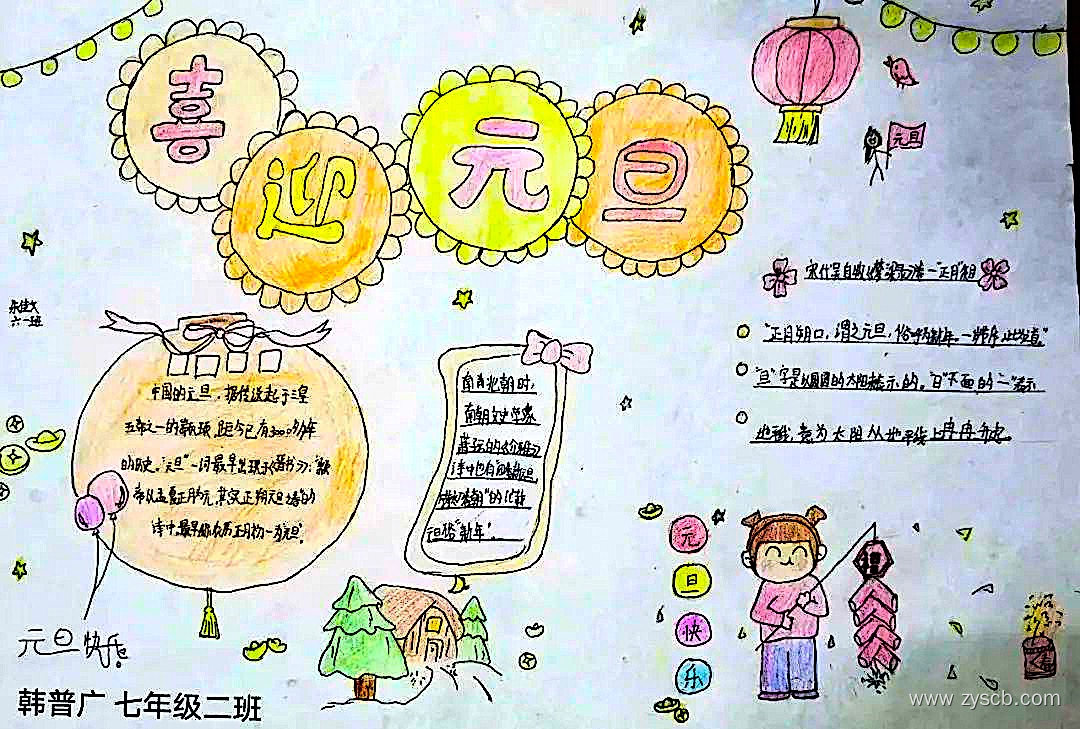 喜迎元旦
元旦
六一班
中国的元旦，据传说起于三皇
五帝之一的颛顼，距今已有3000多年
的历史。"元旦"一词最早出现于《晋书》："颛
帝以孟夏正月为元，其实正朔元旦之春"的
诗中。
南北朝时，
南朝文史学家
萧子云的《介雅》
诗中也有
的记载
元旦 "新年"。
宋代吴自牧《梦粱录》卷一"正月"条目
"正月朔日，谓之元旦，俗呼为新年。一岁节序，此为之首"
"旦"字是以圆圆的太阳来表示的。"日"下面的"一"表示
地平线，意为太阳从地平线上冉冉升起。
福
元旦快乐
元旦快乐。
韩普广 七年级二班
www.zyscb.com